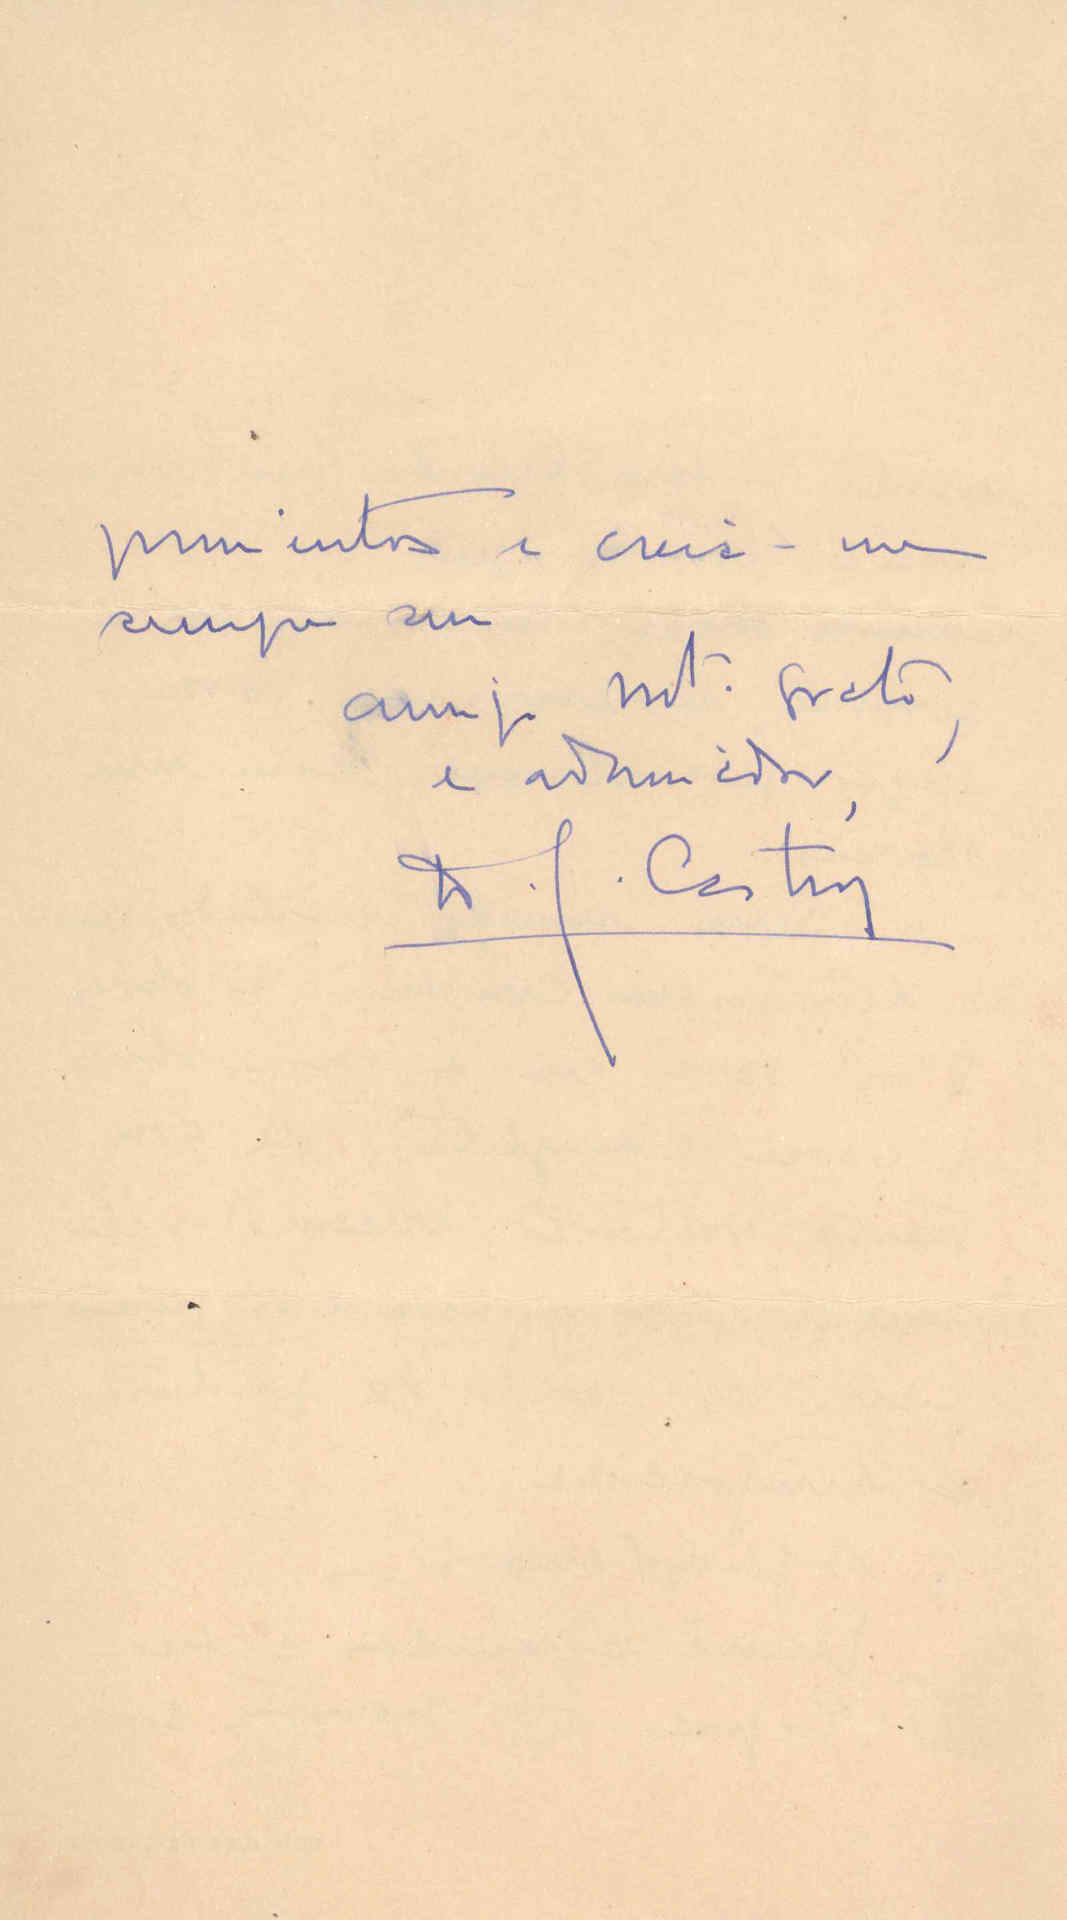 primentos e creia-me
sempre seu
amigo mt. grato,
e admirador,
J. Castro